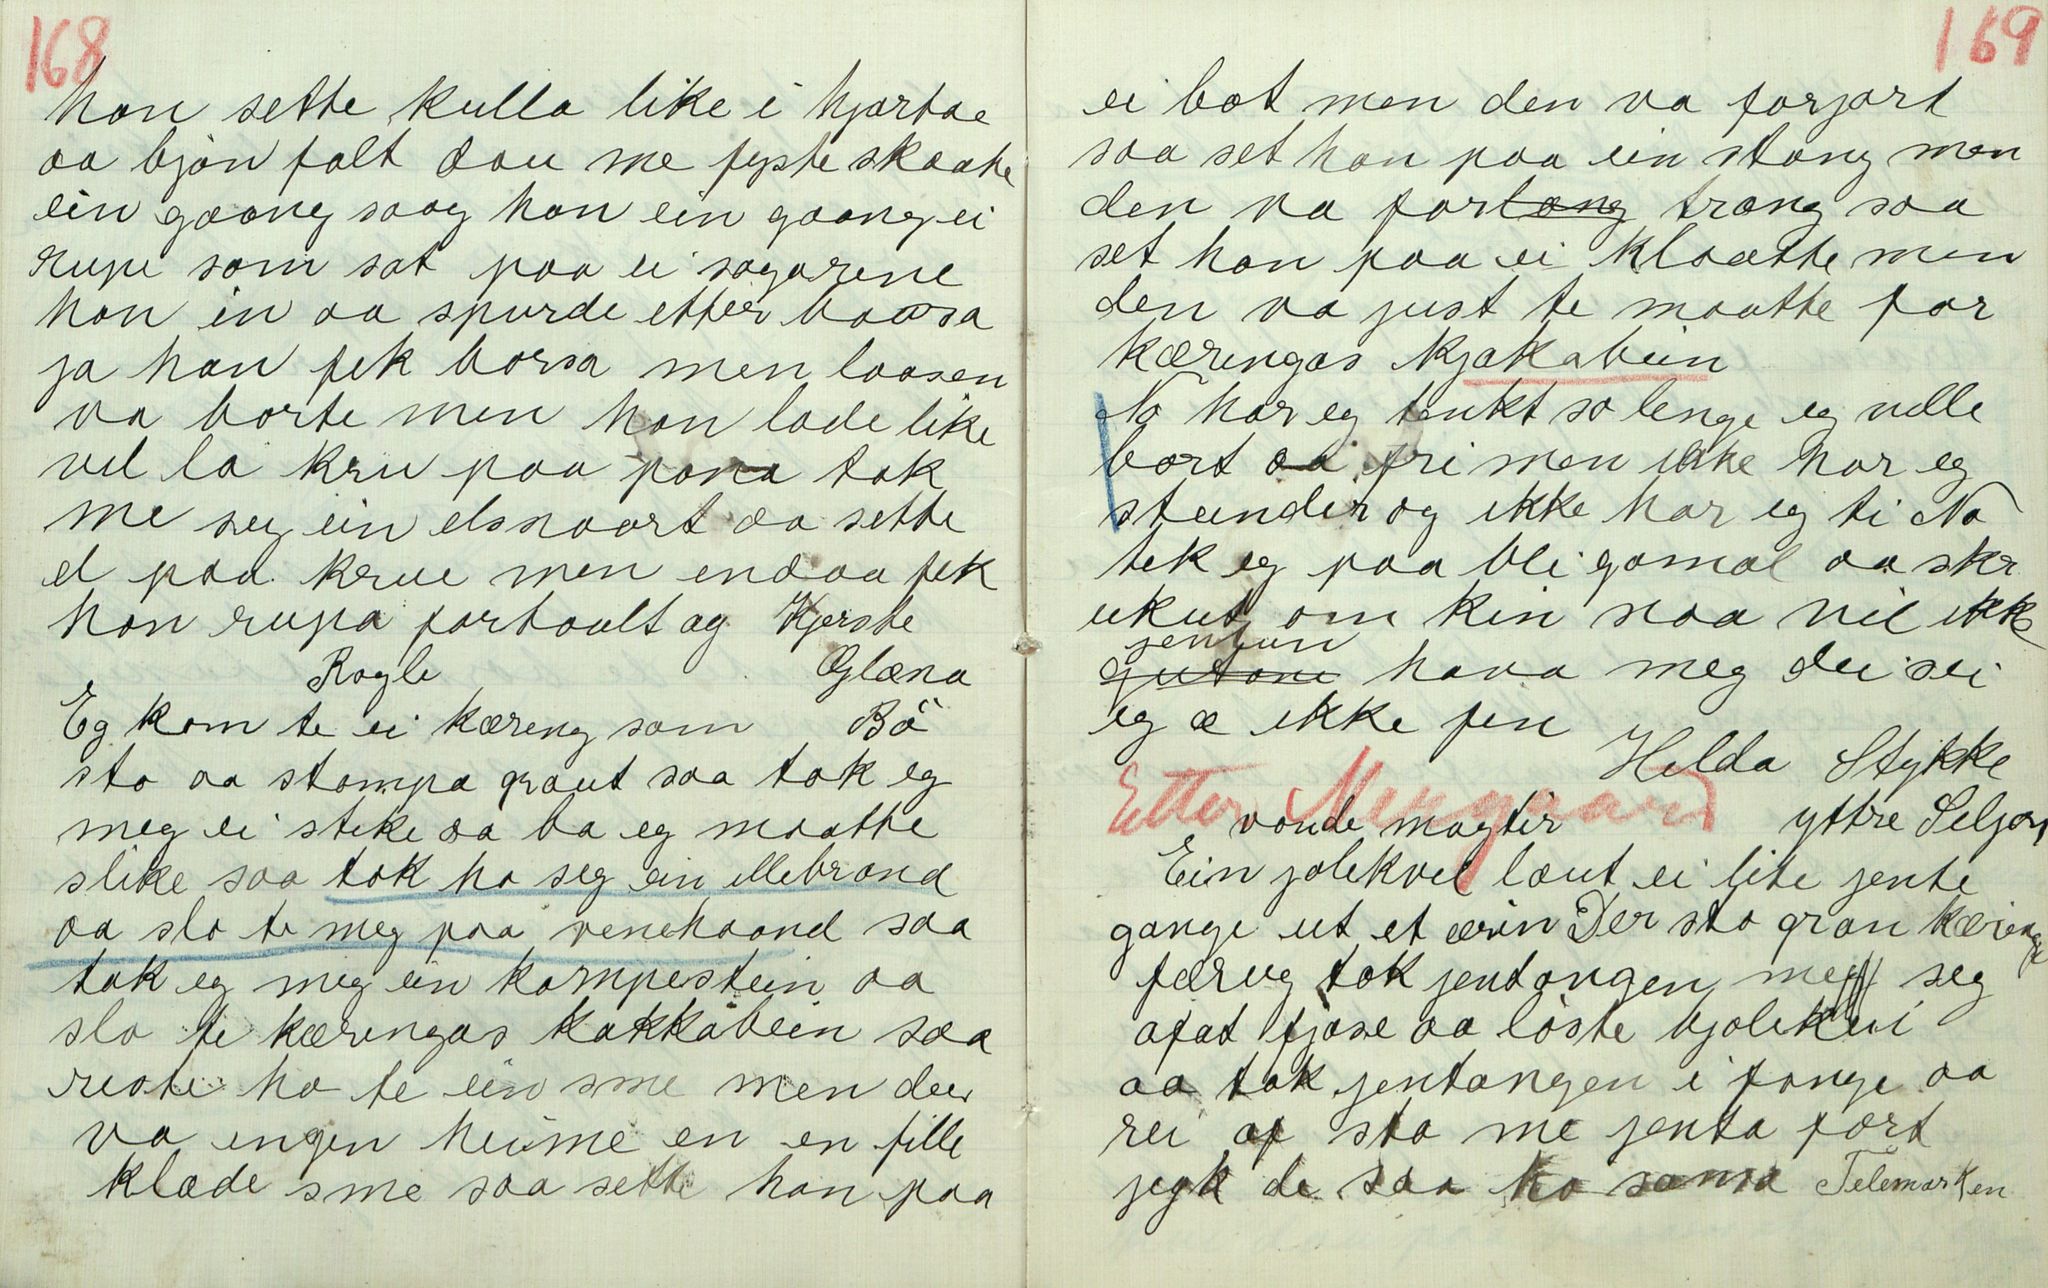 168
han sette kulla like i hjartae
aa bjøn falt dau me fyste skaate
ein gaang saag han ein gaang ei
rupe som sat paa ei sagarene
han in aa spurde etter baarsa
ja han fek borsa men laasen
va borte men han lade like
vel la kru paa pana tok
me seg ein elsnaart aa sette
el paa krue men endaa fek
han rupa fortault ag Kjerste
Ragle Glæna
Eg kom te ei kæreng som Bö
sto aa stompa graut saa tok eg
meg ei steke aa ba eg maatte
slike saa tok ho seg ein ellebrand
aa slo te meg paa venehaand saa
tok eg meg ein kampestein aa
slo te kærengas kakkabein saa
reste ho te ein sme men der
va engen heime en en fille
klade sme saa sette han paa
169
ei bot men den va forjort
saa set han paa ein stang men
den va for lang trang saa
set han paa ei klaatte men
den va just te maatte for
kærengas kjakabein
No har eg tenkt so lenge eg velle
bort aa fri men ikke har eg
stunder og ikke har eg ti No
tek eg paa bli gamal aa skr
ukut om kin naa vil ikke
jentun
gutane hava meg dei sei
eg æ ikke fen
Helda Stykke
Etter Mengaard
vonde magter yttre Seljor
Ein jolekvel laut ei lite jente
gange ut et ærin Der sto gran kærenge
færug tok jentongen me seg
afat fjøse aa löste bjölekui
aa tok jentongen i fange aa
rei af sta me jenta fort
jegk de saa ho sansa Telemarken